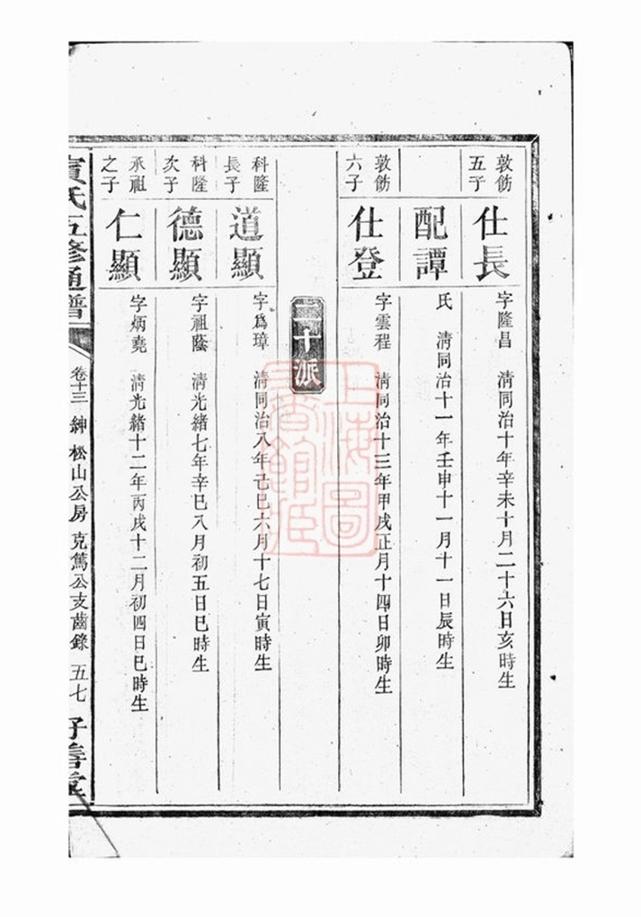 敦飭五子
仕長
字隆昌 清同治十年辛未十月二十六日亥時生
配譚
氏 清同治十一年壬申十一月十一日辰時生
敦飭六子
仕登
字雲程 清同治十三年甲戌正月十四日卯時生
二十派
科隆長子
道顯
字為璋 清同治八年己巳六月十七日寅時生
科隆次子
德顯
字祖蔭 清光緒七年辛巳八月初五日巳時生
承祖之子
仁顯
字炳堯 清光緒十二年丙戌十二月初四日巳時生
氏五修通譜
卷十三 紳松山公房 克篤公支齒錄 五七
好善堂
上海圖